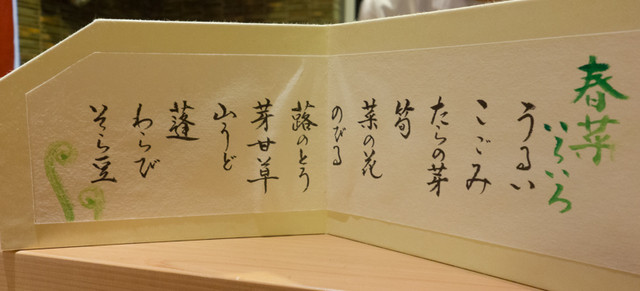 春菜
いろいろ
うるい
こごみ
たらの芽
筍
菜の花
のびる
蕗のとう
芽甘草
山うど
蓬
わらび
そら豆